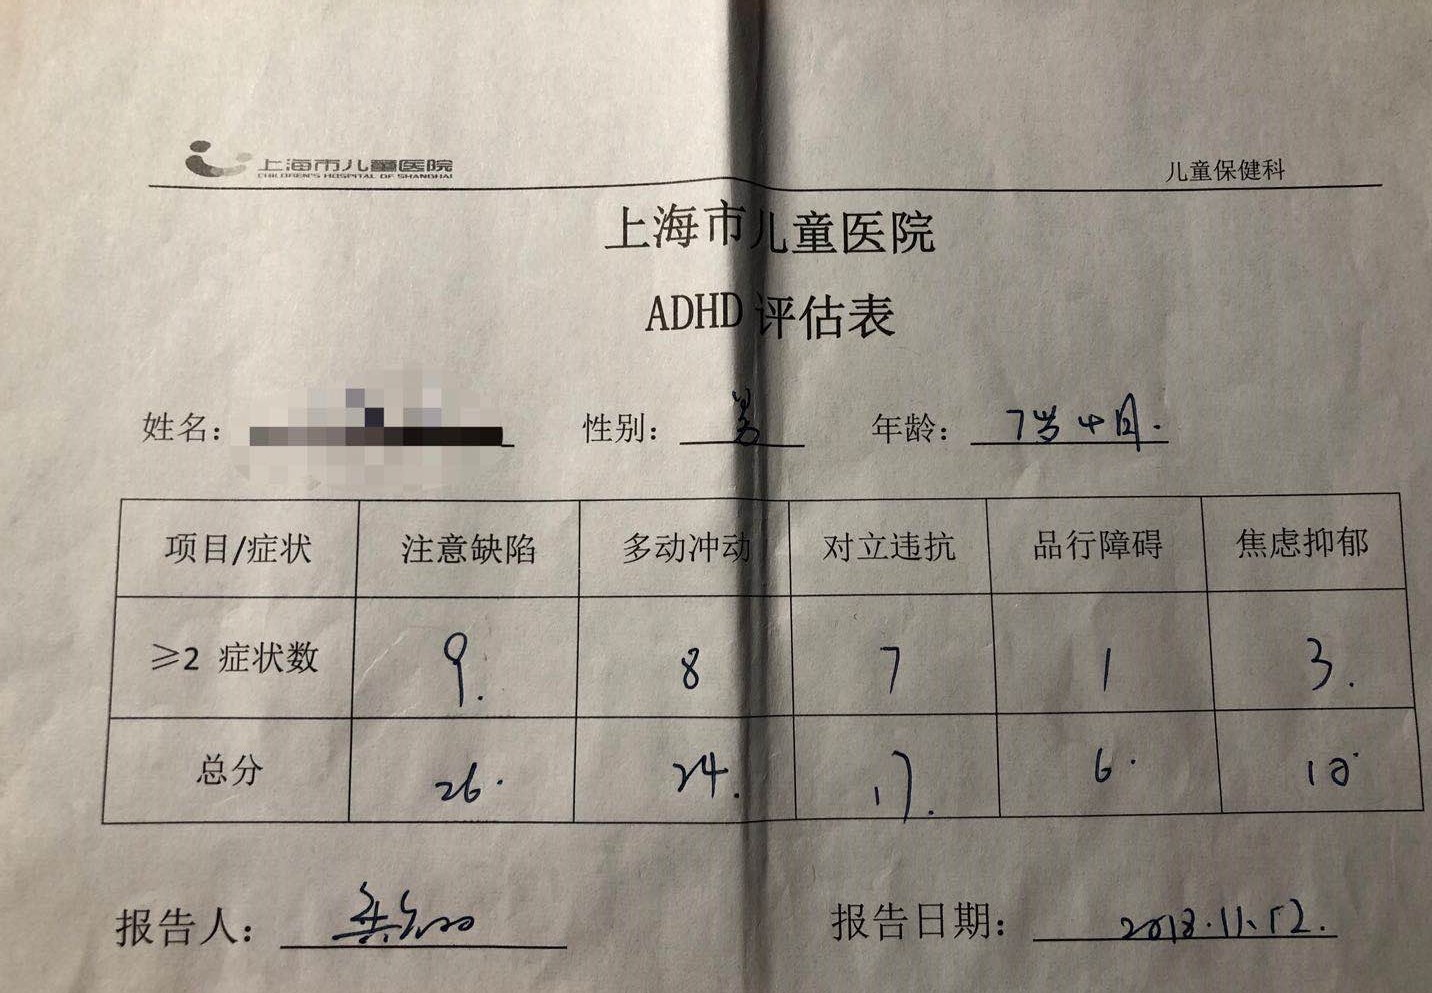 上海市儿童医院
CHILDREN'S HOSPITAL OF SHANGHAI
儿童保健科
上海市儿童医院
ADHD 评估表
姓名： 性别： 男 年龄： 7岁4月.
项目/症状 注意缺陷 多动冲动 对立违抗 品行障碍 焦虑抑郁
≥2 症状数 9. 8 7 1 3.
总分 26. 24. 17. 6. 10.
报告人： 报告日期： 2018.11.12.